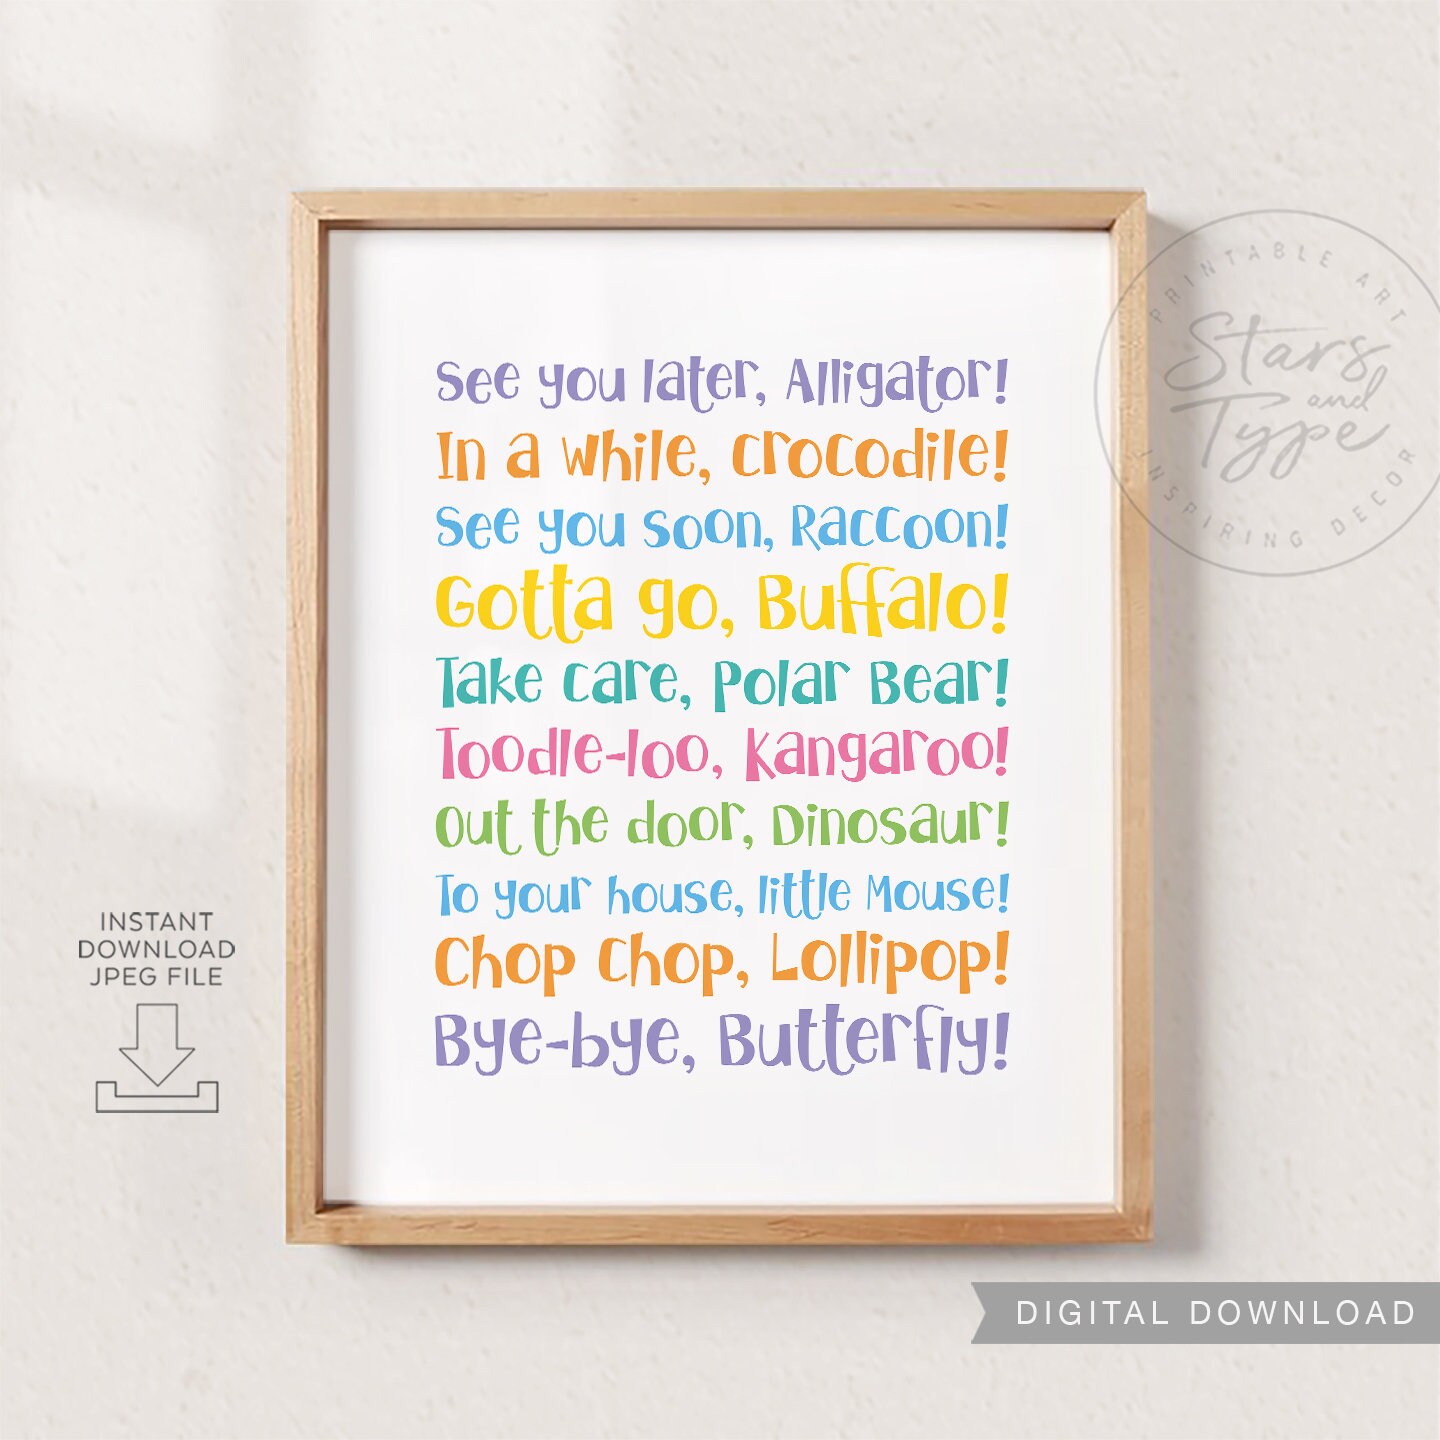 See you later, Alligator!
In a while, Crocodile!
See you soon, Raccoon!
Gotta go, Buffalo!
Take care, Polar Bear!
Toodle-loo, Kangaroo!
Out the door, Dinosaur!
To your house, little Mouse!
Chop Chop, Lollipop!
Bye-bye, Butterfly!
PRINTABLE ART
Stars
and
Type
INSPIRING DECOR
INSTANT
DOWNLOAD
JPEG FILE
DIGITAL DOWNLOAD